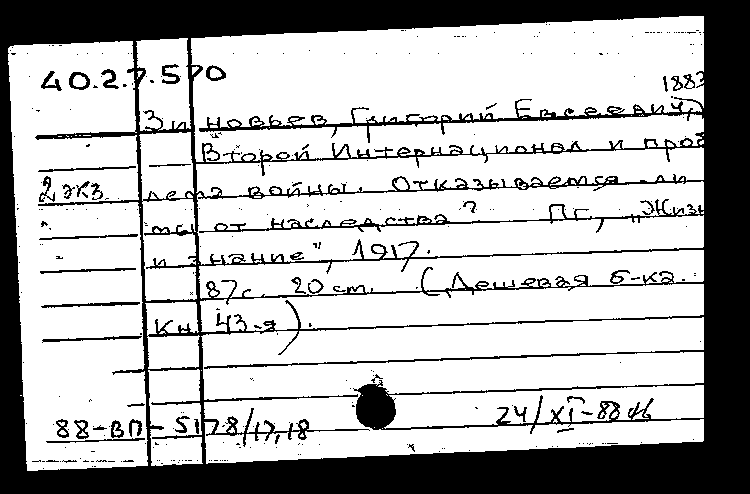 40.2.7.570
1883
Зиновьев, Григорий Евсеевич,
Второй Интернационал и проб
2 экз. лема войны. Отказываемся ли
мы от наследства? Пг, „Жизн
и знание", 1917.
87с. 20 ст. (Дешевая б-ка.
Кн. 43-я).
88-ВП-5178/17,18
24/XI-88